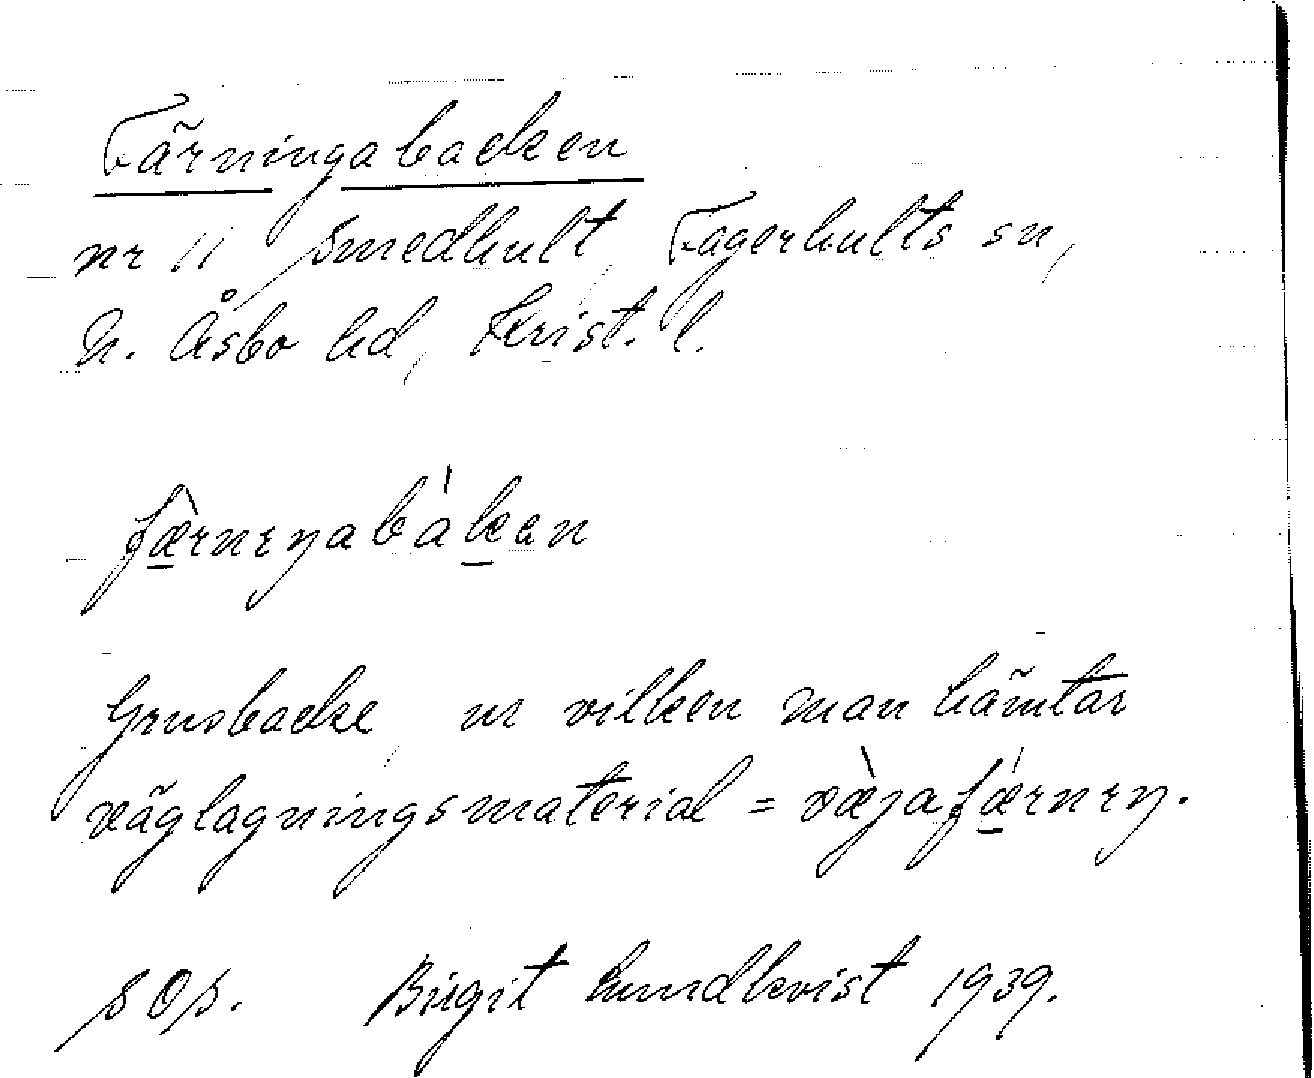 Färningabacken
nr 11 Smedhult, Fagerhults sn,
N. Åsbo hd, Krist. l.
fæ̀rnıŋabákan
Grusbacke, ur vilken man hämtar
väglagningsmaterial = væ̀jafǽrnıŋ.
SOS. Birgit Lundkvist 1939.